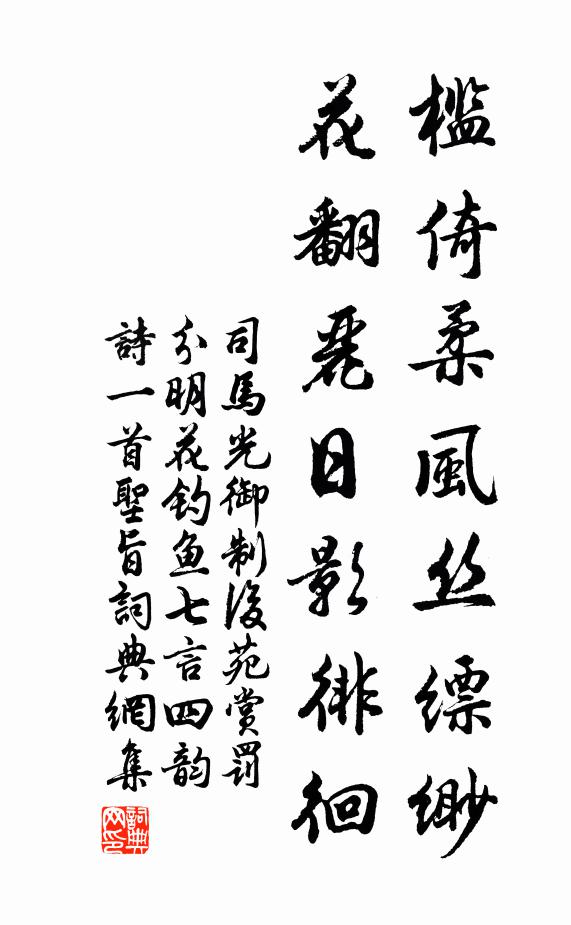 檻倚柔風丝縹緲
花翻麗日影徘徊
司馬光御制後苑賞罰
分明花钓鱼七言四韵
詩一首聖旨詞典網集
詞典网印